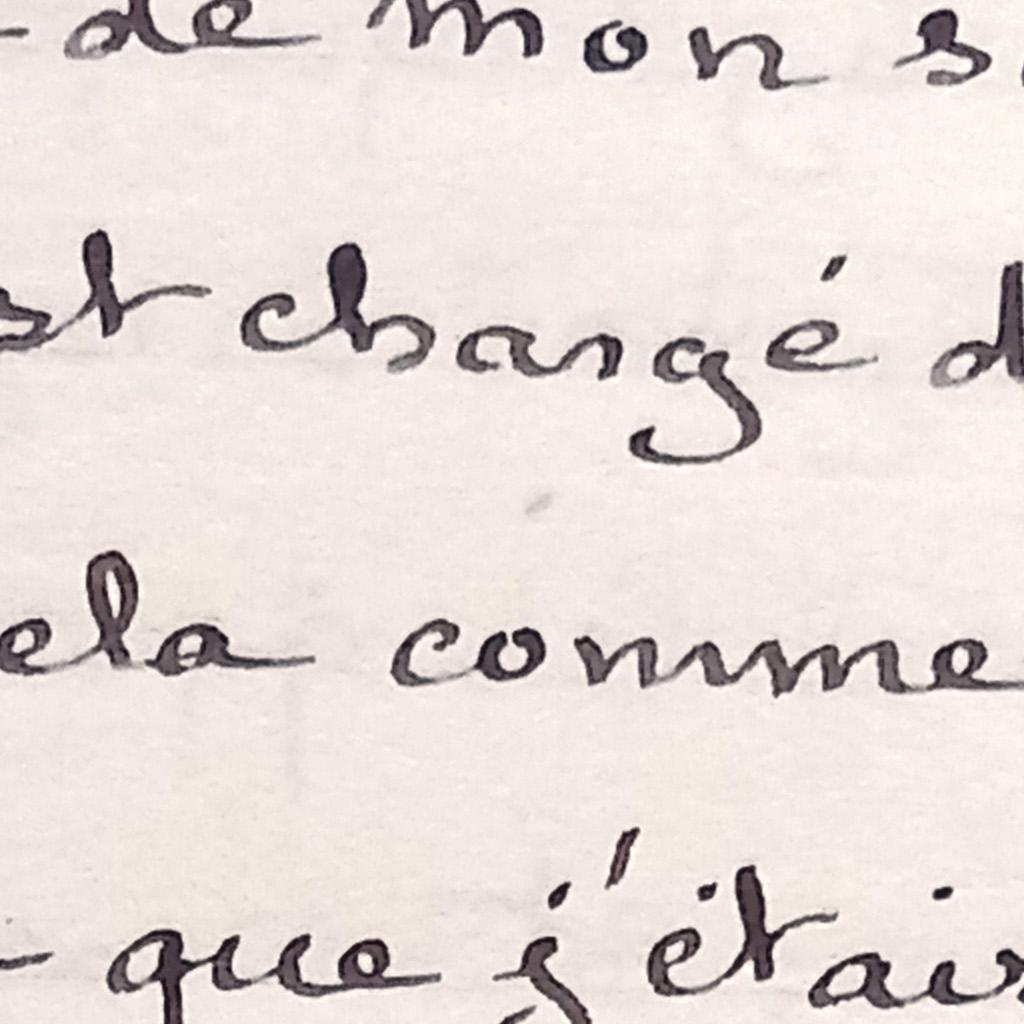 de mon s
st chargé d
ela comme
que j'étais